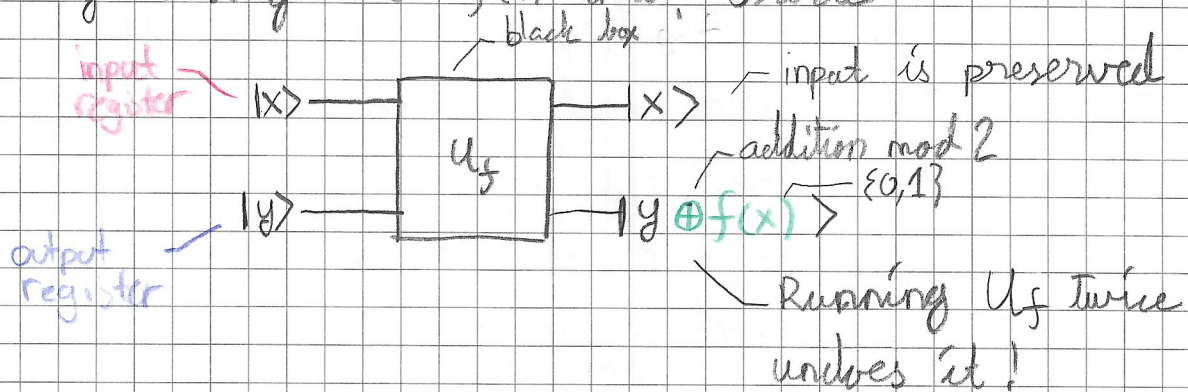 black box
input
register
|x>
|x>
input is preserved
U_f
addition mod 2
{0,1}
|y>
|y ⊕ f(x)>
output
register
Running U_f twice
undoes it!